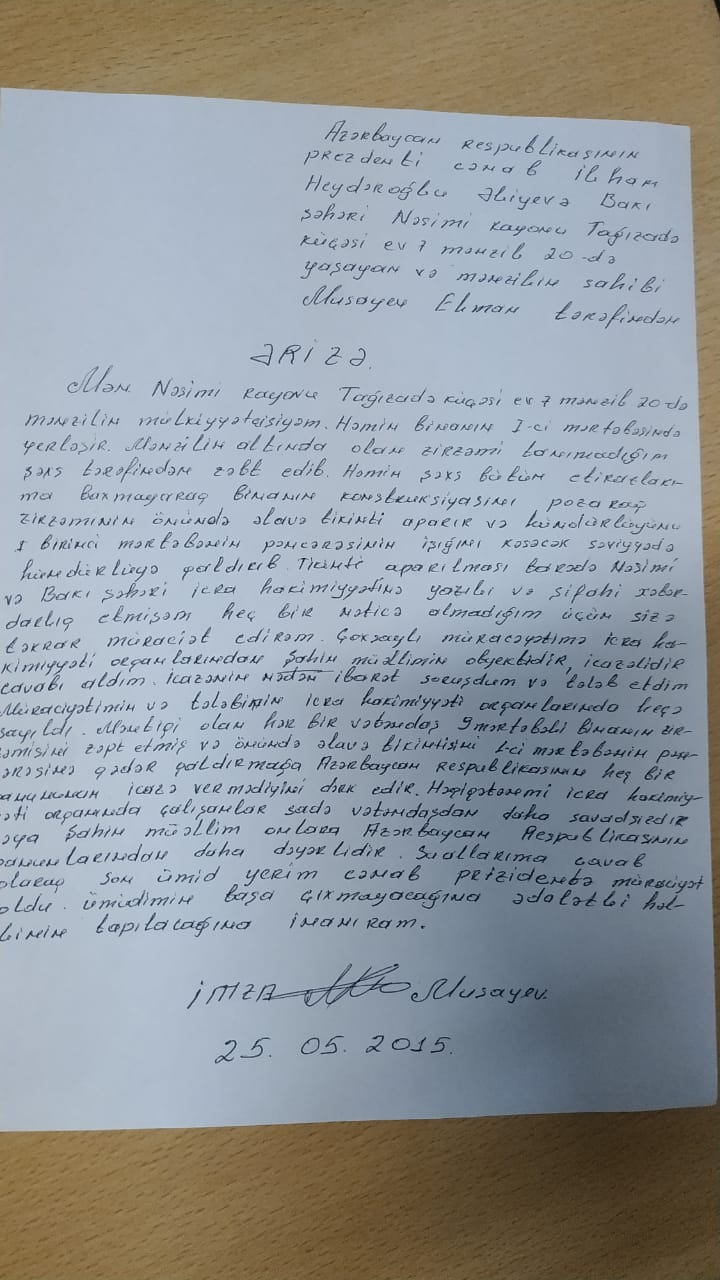 Azərbaycan Respublikasının
prezdenti cənab İlham
Heydəroğlu Əliyevə Bakı
şəhəri Nəsimi rayonu Tağızadə
küçəsi ev 7 mənzil 20-də
yaşayan və mənzilin sahibi
Musayev Elman tərəfindən
ƏRİZƏ.
Mən Nəsimi rayonu Tağızadə küçəsi ev 7 mənzil 20-də
mənzilin mülkiyyətçisiyəm. Həmin binanın I-ci mərtəbəsində
yerləşir. Mənzilin altında olan zirzəmi tanımadığım
şəxs tərəfindən zəbt edib. Həmin şəxs bütün etirazları-
ma baxmayaraq binanın konstruksiyasını pozaraq
zirzəminin önündə əlavə tikinti aparır və hündürlüyünü
I birinci mərtəbənin pəncərəsinin işığını kəsəcək səviyyədə
hündürlüyə qaldırıb. Tikinti aparılması barədə Nəsimi
və Bakı şəhəri icra hakimiyyətinə yazılı və şifahi xəbər-
darlıq etmişəm heç bir nəticə almadığım üçün sizə
təkrar müraciət edirəm. Çoxsaylı müracəyətimə icra ha-
kimiyyəti orqanlarından Şahin müəllimin obyektidir, icazəlidir
cavabı aldım. İcazənin nədən ibarət soruşdum və tələb etdim
Müraciyətimin və tələbimin icra hakimiyyəti orqanlarında heçə
sayıldı. Məntiqi olan hər bir vətəndaş 9 mərtəbəli binanın zir-
əmisini zəpt etmiş və önündə əlavə tikintisini 1-ci mərtəbənin pən-
ərəsinə qədər qaldırmağa Azərbaycan Respublikasının heç bir
anununun icazə vermədiyini dərk edir. Həqiqətənmi icra hakimiy-
əti orqanında çalışanlar sadə vətəndaşdan daha savadsızdır
əya Şahin müəllim onlara Azərbaycan Respublikasının
anunlarından daha dəyərlidir. Suallarıma cavab
olaraq son ümid yerim cənab prizidentə müraciyət
oldu. Ümüdimin başa çıxmayacağına ədalətli həl-
linin tapılacağına inanıram.
İMZA Musayev.
25. 05. 2015.